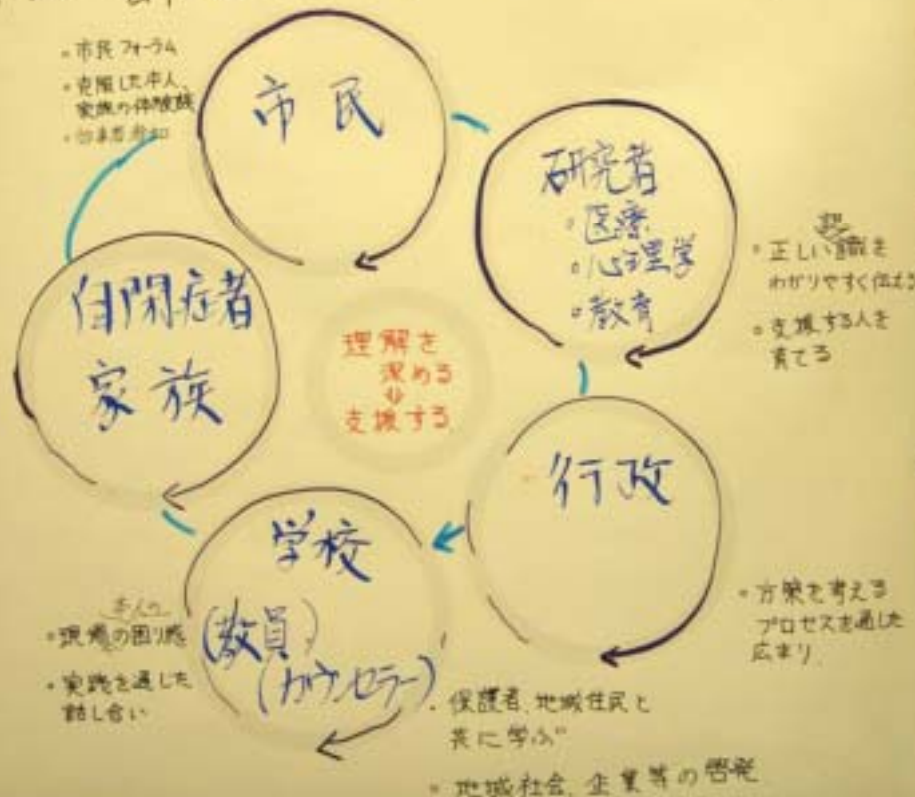 ・市民フォーラム
・克服した本人、
家族の体験談
市民
研究者
・医療
・心理学
・教育
・正しい知識を
わかりやすく伝える
・支援する人を
育てる
自閉症者
家族
理解を
深める
⇓
支援する
行政
・方策を考える
プロセスを通した
広まり
学校
(教員)
(カウンセラー)
本人の
・現場の困り感
・実践を通した
話し合い
・保護者、地域住民と
共に学ぶ
・地域社会、企業等の啓発